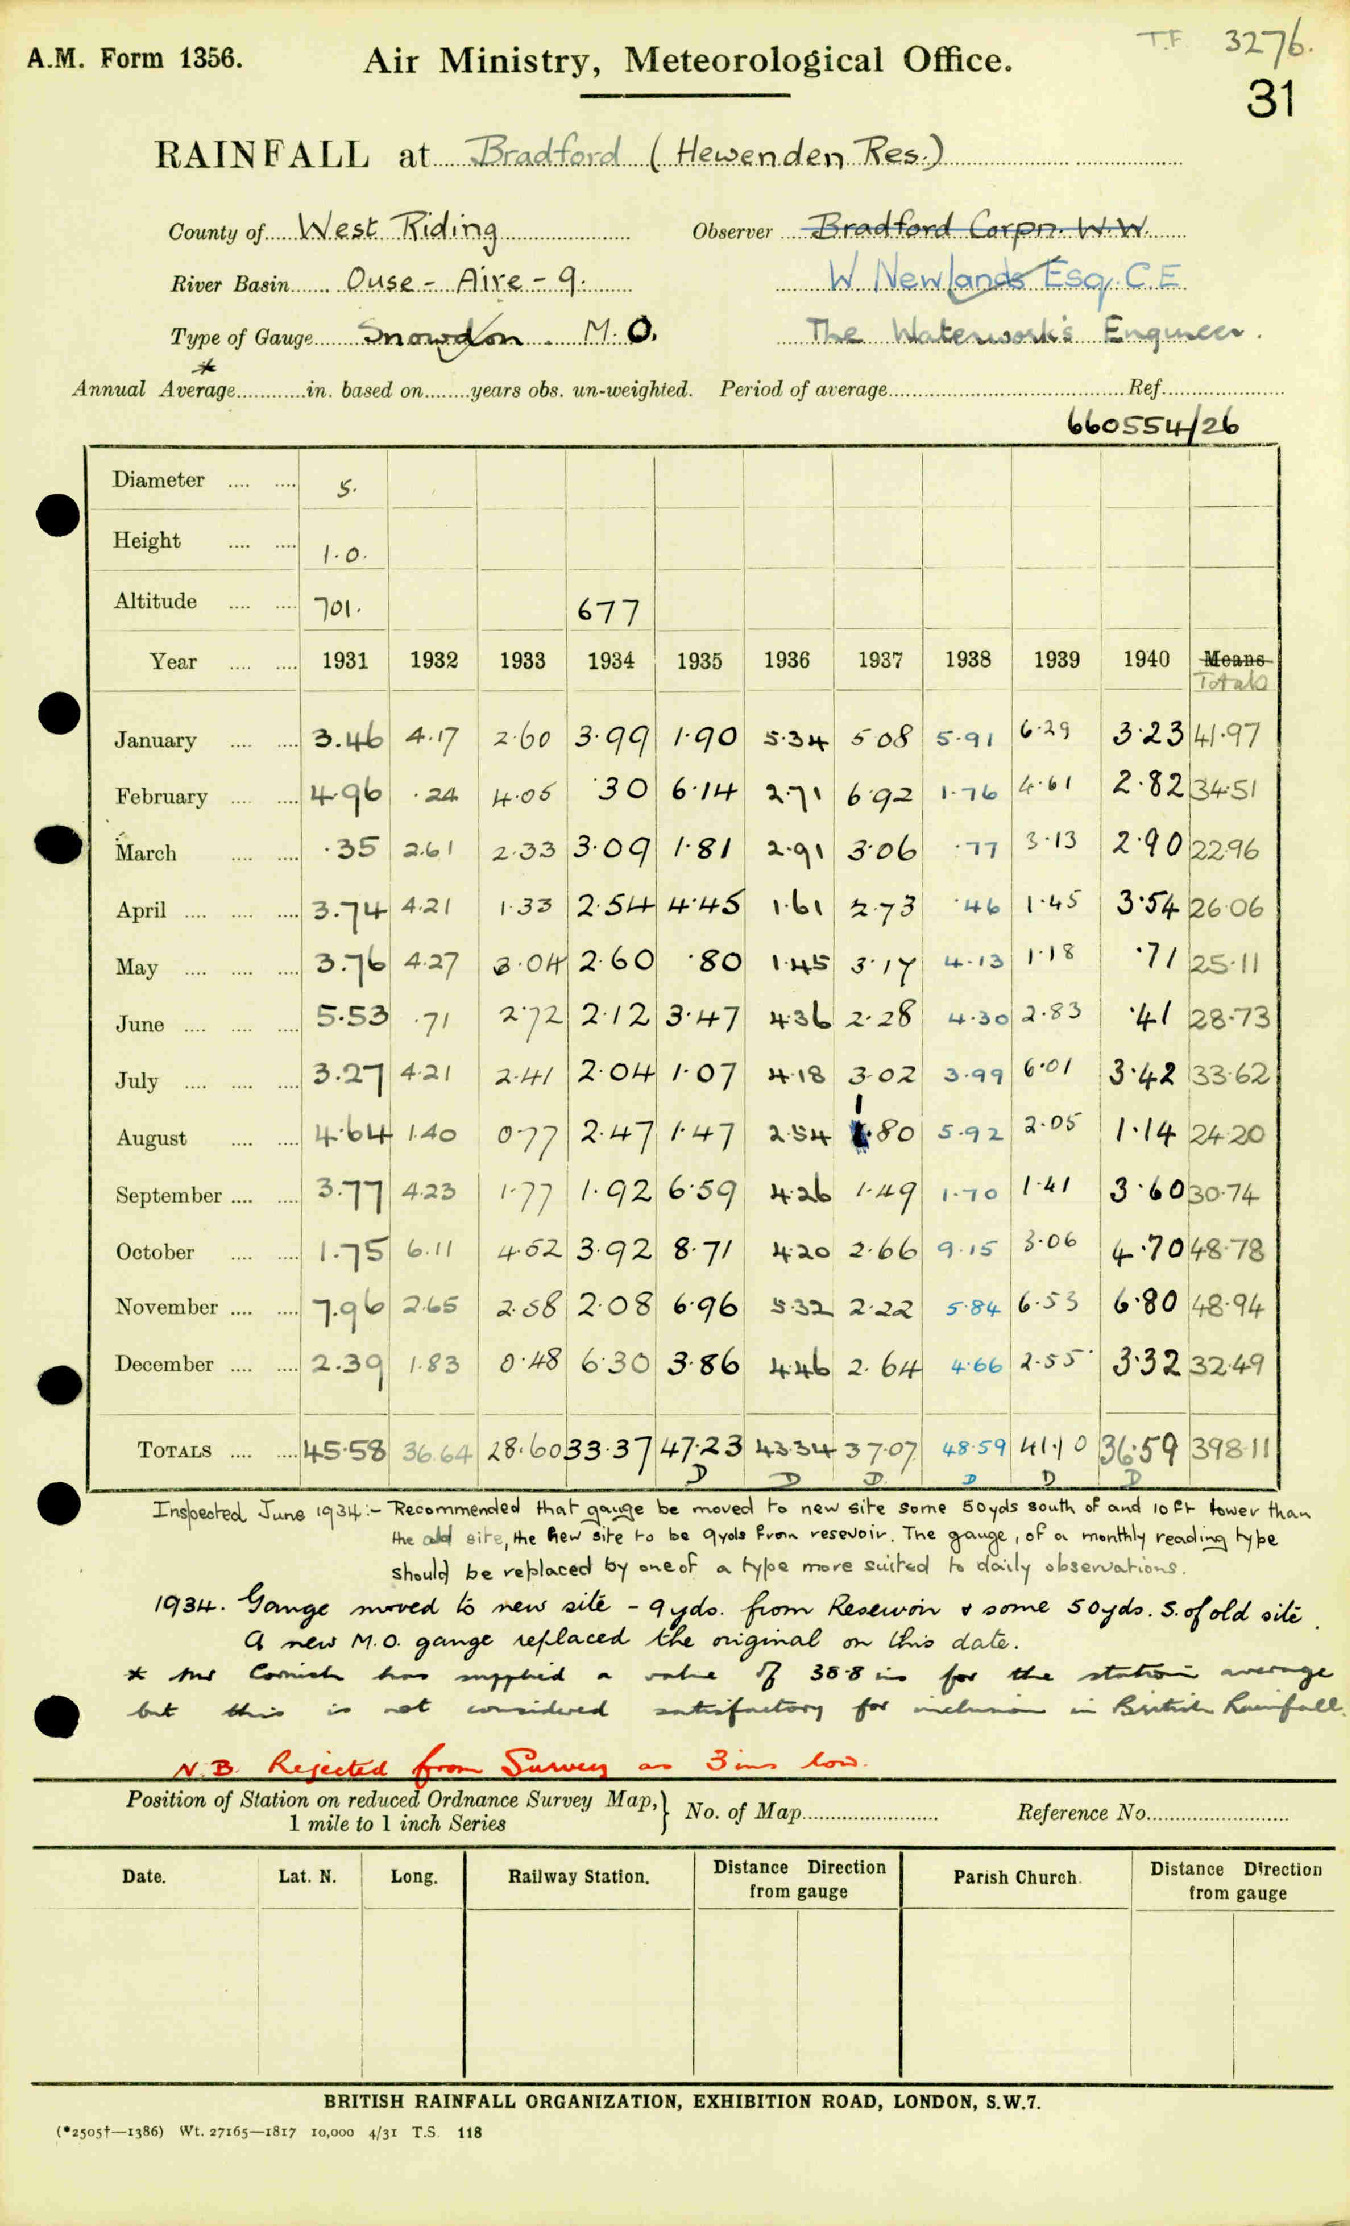 T.F 3276.
A.M. Form 1356. Air Ministry, Meteorological Office.
31
RAINFALL at Bradford (Hewenden Res.)
County of West Riding Observer Bradford Corpn. W.W.
River Basin Ouse - Aire - 9. W Newlands Esq. C.E
Type of Gauge Snowdon M.O. The Waterworks Engineer.
*
Annual Average in. based on years obs. un-weighted. Period of average Ref.
660554/26
Diameter 5.
Height 1.0.
Altitude 701. 677
Year 1931 1932 1933 1934 1935 1936 1937 1938 1939 1940 Means
Totals
January 3.46 4.17 2.60 3.99 1.90 5.34 5.08 5.91 6.29 3.23 41.97
February 4.96 .24 4.05 .30 6.14 2.71 6.92 1.76 4.61 2.82 34.51
March .35 2.61 2.33 3.09 1.81 2.91 3.06 .77 3.13 2.90 22.96
April 3.74 4.21 1.33 2.54 4.45 1.61 2.73 .46 1.45 3.54 26.06
May 3.76 4.27 3.04 2.60 .80 1.45 3.17 4.13 1.18 .71 25.11
June 5.53 .71 2.72 2.12 3.47 4.36 2.28 4.30 2.83 .41 28.73
July 3.27 4.21 2.41 2.04 1.07 4.18 3.02 3.99 6.01 3.42 33.62
August 4.64 1.40 0.77 2.47 1.47 2.54 1.80 5.92 2.05 1.14 24.20
September 3.77 4.23 1.77 1.92 6.59 4.26 1.49 1.70 1.41 3.60 30.74
October 1.75 6.11 4.52 3.92 8.71 4.20 2.66 9.15 3.06 4.70 48.78
November 7.96 2.65 2.58 2.08 6.96 5.32 2.22 5.84 6.53 6.80 48.94
December 2.39 1.83 0.48 6.30 3.86 4.46 2.64 4.66 2.55 3.32 32.49
TOTALS 45.58 36.64 28.60 33.37 47.23 43.34 37.07 48.59 41.10 36.59 398.11
D D D D D D
Inspected June 1934:- Recommended that gauge be moved to new site some 50yds south of and 10 ft lower than
the old site, the new site to be 9yds from resevoir. The gauge, of a monthly reading type
should be replaced by one of a type more suited to daily observations.
1934. Gauge moved to new site - 9 yds. from Reservoir & some 50yds. S. of old site.
A new M.O. gauge replaced the original on this date.
* Mr Cornish has supplied a value of 38.8 ins for the station average
but this is not considered satisfactory for inclusion in British Rainfall.
N.B. Rejected from Survey as 3 ins low.
Position of Station on reduced Ordnance Survey Map, } No. of Map Reference No.
1 mile to 1 inch Series
Date. Lat. N. Long. Railway Station. Distance Direction from gauge Parish Church. Distance Direction from gauge
BRITISH RAINFALL ORGANIZATION, EXHIBITION ROAD, LONDON, S.W.7.
(*2505†—1386) Wt. 27165—1817 10,000 4/31 T.S. 118